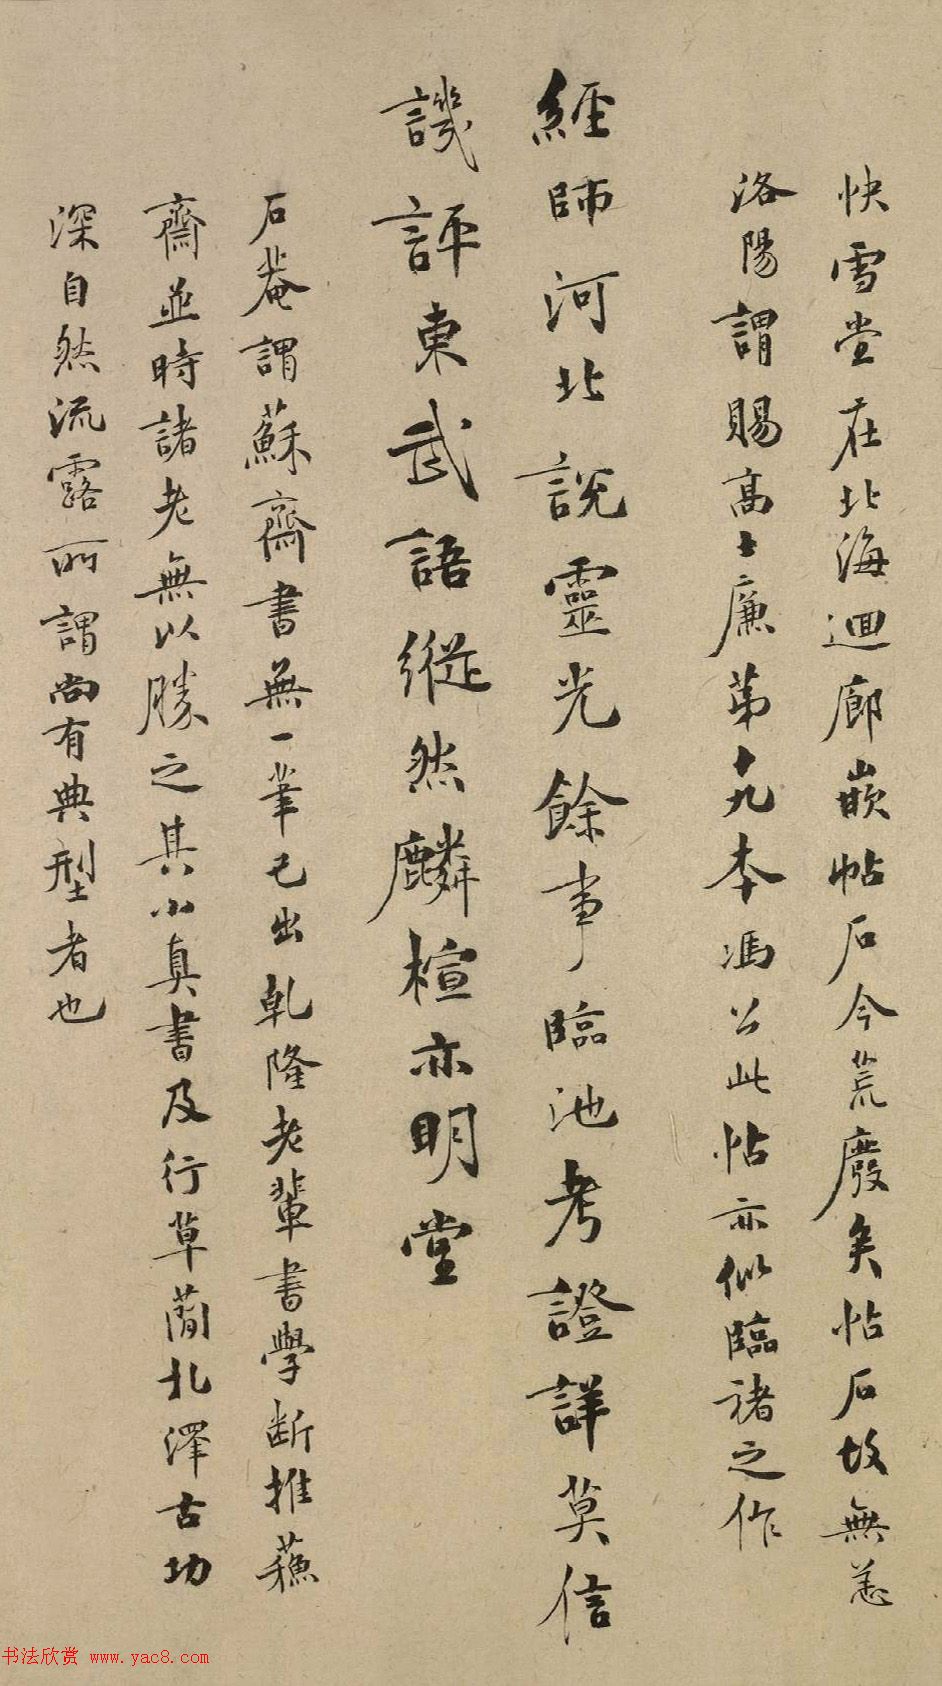 快雪堂在北海迴廊嵌帖石今荒廢矣帖石故無恙
洛陽謂賜高士廉第十九本馮公此帖亦似臨褚之作
經師河北說靈光餘事臨池考證詳莫信
譏評東武語縱然麟楦亦明堂
石菴謂蘇齋書無一筆己出乾隆老輩書學斷推蘓
齋並時諸老無以勝之其小真書及行草蕳札澤古功
深自然流露所謂尚有典型者也
书法欣赏 www.yac8.com